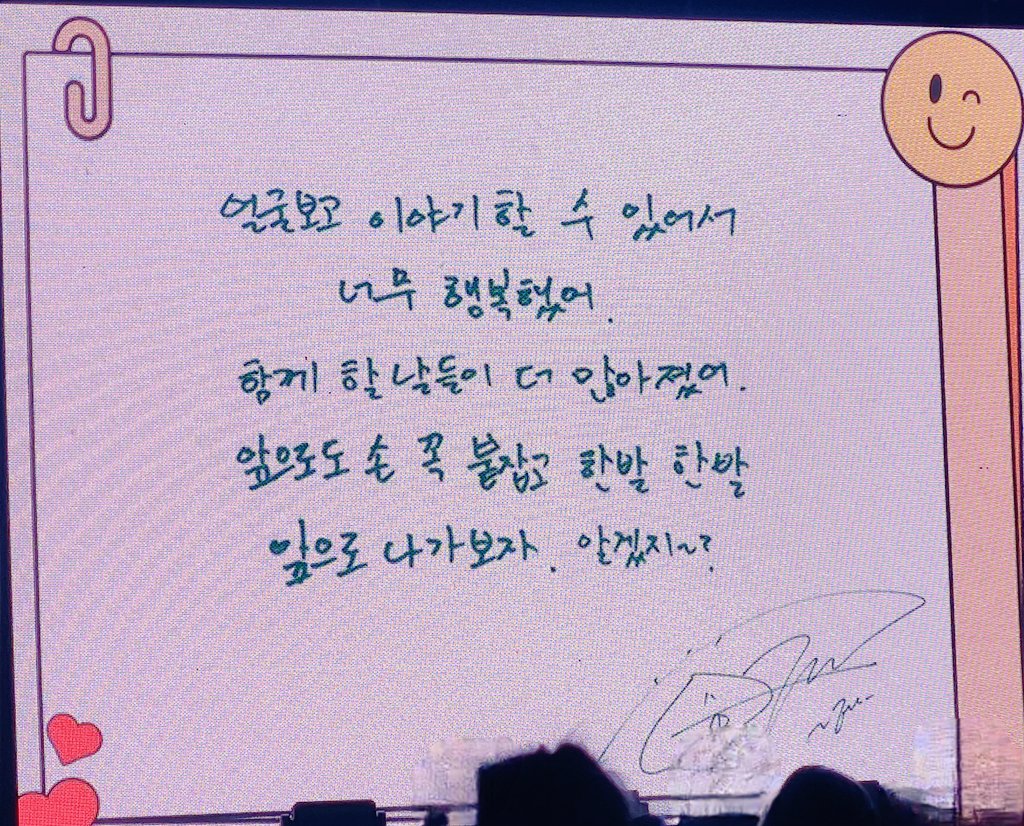 얼굴보고 이야기 할 수 있어서
너무 행복했어.
함께 할 날들이 더 많아졌어.
앞으로도 손 꼭 붙잡고 한발 한발
앞으로 나가보자. 알겠지~?